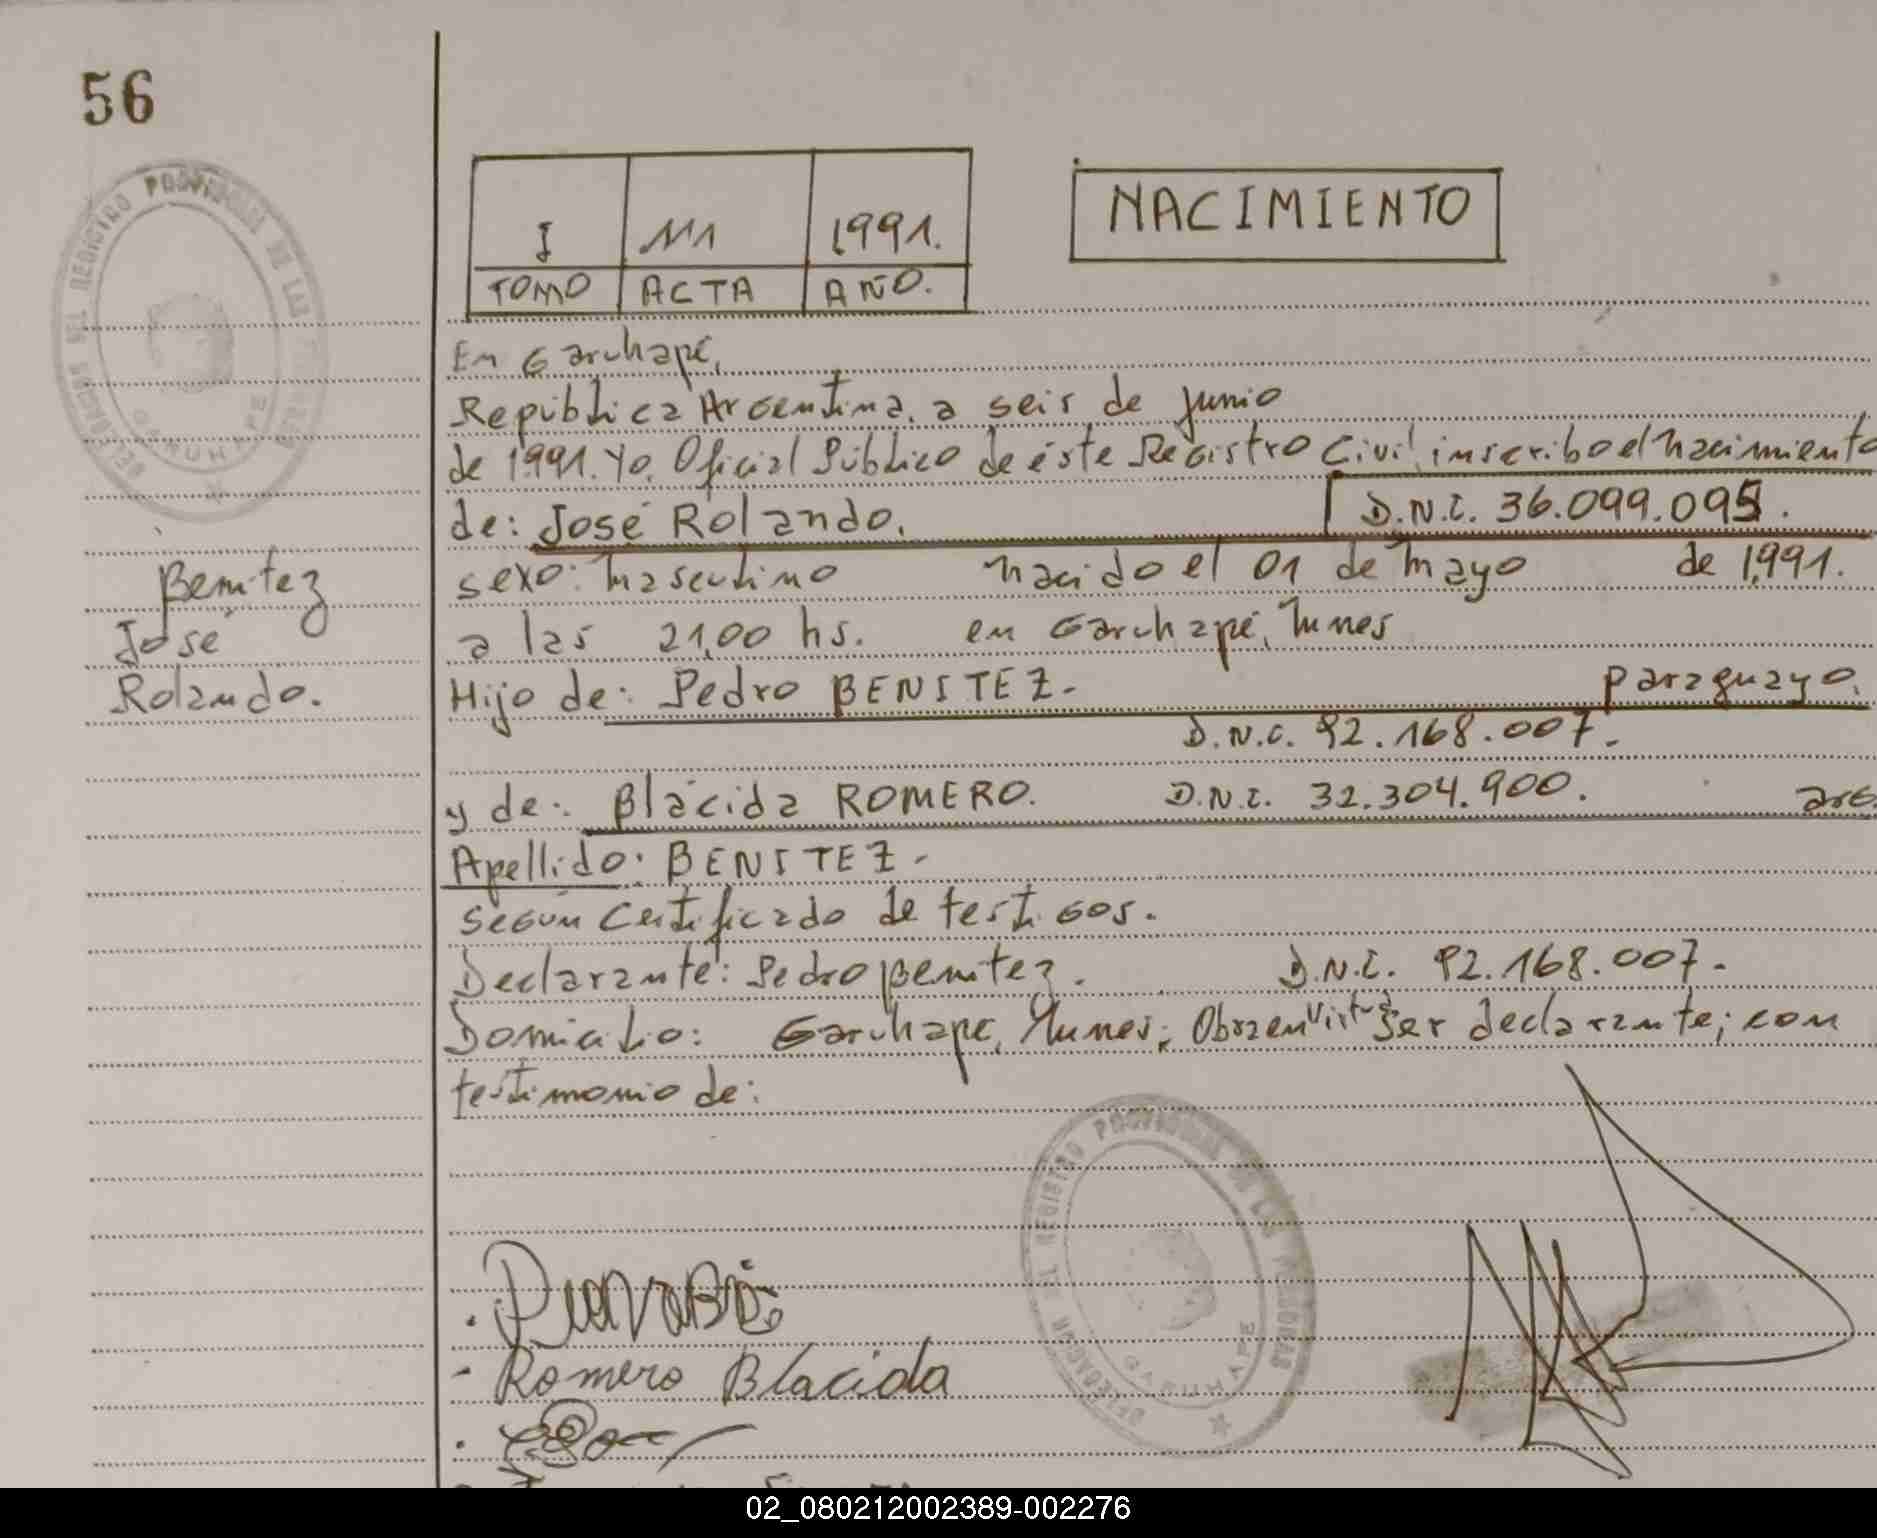 56
DELEGACION DEL REGISTRO PROVINCIAL DE LAS PERSONAS
GARUHAPE
I 111 1991.
TOMO ACTA AÑO.
NACIMIENTO
En Garuhapé,
República Argentina, a seis de junio
de 1991. Yo, Oficial Público de éste Registro Civil, inscribo el nacimiento
de: José Rolando. D.N.I. 36.099.095.
sexo: masculino nacido el 01 de mayo de 1,991.
a las 21,00 hs. en Garuhapé, Mnes
Hijo de: Pedro BENITEZ. paraguayo.
D.N.I. 92.168.007.
y de: Blácida ROMERO. D.N.I. 32.304.900. arg.
Apellido: BENITEZ.
Según Certificado de testigos.
Declarante: Pedro Benitez. D.N.I. 92.168.007.
Domicilio: Garuhapé, Mnes; Obra en virtud ser declarante; con
testimonio de:
Benitez
José
Rolando.
- Romero Blacida
DELEGACION DEL REGISTRO PROVINCIAL DE LAS PERSONAS
GARUHAPE
02_080212002389-002276